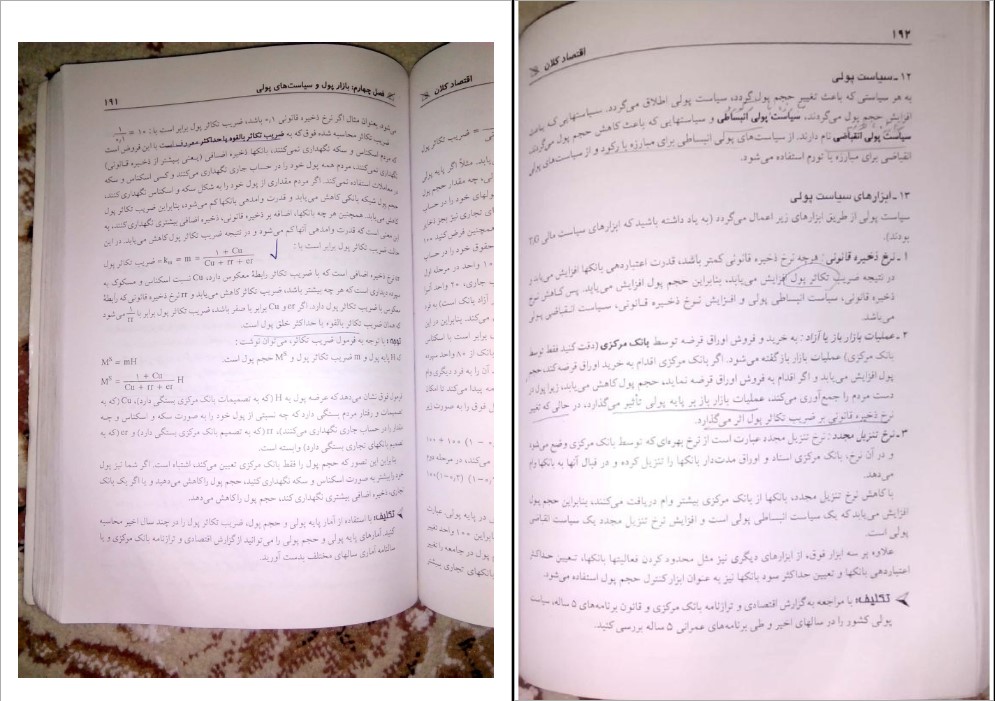 ۱۹۲
اقتصاد کلان
۱۲ ـ سیاست پولی
به هر سیاستی که باعث تغییر حجم پول گردد، سیاست پولی اطلاق می‌گردد. سیاستهایی که باعث
افزایش حجم پول می‌گردند، سیاست پولی انبساطی و سیاستهایی که باعث کاهش حجم پول می‌گردند،
سیاست پولی انقباضی نام دارند. از سیاست‌های پولی انبساطی برای مبارزه با رکود و از سیاست‌های پولی
انقباضی برای مبارزه با تورم استفاده می‌شود.
۱۳ ـ ابزارهای سیاست پولی
سیاست پولی از طریق ابزارهای زیر اعمال می‌گردد (به یاد داشته باشید که ابزارهای سیاست مالی
بودند).
۱ ـ نرخ ذخیره قانونی : هرچه نرخ ذخیره قانونی کمتر باشد، قدرت اعتباردهی بانکها افزایش می‌یابد و
در نتیجه ضریب تکاثر پول افزایش می‌یابد، بنابراین حجم پول افزایش می‌یابد. پس کاهش نرخ
ذخیره قانونی، سیاست انبساطی پولی و افزایش نرخ ذخیره قانونی، سیاست انقباضی پولی
می‌باشد.
۲ ـ عملیات بازار باز یا آزاد : به خرید و فروش اوراق قرضه توسط بانک مرکزی (دقت کنید فقط توسط
بانک مرکزی) عملیات بازار باز گفته می‌شود. اگر بانک مرکزی اقدام به خرید اوراق قرضه کند، حجم
پول افزایش می‌یابد و اگر اقدام به فروش اوراق قرضه نماید، حجم پول کاهش می‌یابد، زیرا پول در
دست مردم را جمع‌آوری می‌کند، عملیات بازار باز بر پایه پولی تأثیر می‌گذارد، در حالی که تغییر
نرخ ذخیره قانونی بر ضریب تکاثر پول اثر می‌گذارد.
۳ ـ نرخ تنزیل مجدد : نرخ تنزیل مجدد عبارت است از نرخ بهره‌ای که توسط بانک مرکزی وضع می‌شود
و در آن نرخ، بانک مرکزی اسناد و اوراق مدت‌دار بانکها را تنزیل کرده و در قبال آنها به بانکها وام
می‌دهد.
با کاهش نرخ تنزیل مجدد، بانکها از بانک مرکزی بیشتر وام دریافت می‌کنند، بنابراین حجم پول
افزایش می‌یابد که یک سیاست انبساطی پولی است و افزایش نرخ تنزیل مجدد یک سیاست انقباضی
پولی است.
علاوه بر سه ابزار فوق، از ابزارهای دیگری نیز مثل محدود کردن فعالیتها بانکها، تعیین حداکثر
اعتباردهی بانکها و تعیین حداکثر سود بانکها نیز به عنوان ابزار کنترل حجم پول استفاده می‌شود.
تکلیف: با مراجعه به گزارش اقتصادی و ترازنامه بانک مرکزی و قانون برنامه‌های ۵ ساله، سیاست
پولی کشور را در سالهای اخیر و طی برنامه‌های عمرانی ۵ ساله بررسی کنید.
فصل چهارم: بازار پول و سیاست‌های پولی
۱۹۱
می‌شود. بعنوان مثال اگر نرخ ذخیره قانونی ۰٫۱ باشد، ضریب تکاثر پول برابر است با : ۱۰ = ۱/۰٫۱
ضریب تکاثر محاسبه شده فوق که به ضریب تکاثر بالقوه یا حداکثر، معروف است با این فروض است
که مردم اسکناس و سکه نگهداری نمی‌کنند، بانکها ذخیره اضافی (یعنی بیشتر از ذخیره قانونی)
نگهداری نمی‌کنند، مردم همه پول خود را در حساب جاری نگهداری می‌کنند و کسی اسکناس و سکه
در معاملات استفاده نمی‌کند. اگر مردم مقداری از پول خود را به شکل سکه و اسکناس نگهداری کنند،
حجم پول شبکه بانکی کاهش می‌یابد و قدرت وامدهی بانکها کم می‌شود، بنابراین ضریب تکاثر پول
کاهش می‌یابد. همچنین هر چه بانکها، اضافه بر ذخیره قانونی، ذخیره اضافی بیشتری نگهداری کنند، به
این معنی است که قدرت وامدهی آنها کم می‌شود و در نتیجه ضریب تکاثر پول کاهش می‌یابد. در این
حالت ضریب تکاثر پول برابر است با :
ضریب تکاثر پول = m = (۱ + Cu)/(Cu + rr + er)
er نرخ ذخیره اضافی است که با ضریب تکاثر رابطهٔ معکوس دارد، Cu نسبت اسکناس و مسکوک به
سپرده دیداری است که هر چه بیشتر باشد، ضریب تکاثر کاهش می‌یابد و rr نرخ ذخیره قانونی که رابطهٔ
معکوس با ضریب تکاثر پول دارد. اگر er و Cu برابر با صفر باشد، ضریب تکاثر پول برابر با ۱/rr می‌شود
که همان ضریب تکاثر بالقوه یا حداکثر خلق پول است.
توجه: با توجه به فرمول ضریب تکاثر، می‌توان نوشت :
که H پایه پول و m ضریب تکاثر پول و Mˢ حجم پول است.
Mˢ = mH
Mˢ = (۱ + Cu)/(Cu + rr + er) H
فرمول فوق نشان می‌دهد که عرضه پول به H (که به تصمیمات بانک مرکزی بستگی دارد)، Cu (که به
تصمیمات و رفتار مردم بستگی دارد که چه نسبتی از پول خود را به صورت سکه و اسکناس و چه
مقدار را در حساب جاری نگهداری می‌کنند)، rr (که به تصمیم بانک مرکزی بستگی دارد) و er (که به
تصمیم بانکهای تجاری بستگی دارد) وابسته است.
بنابراین این تصور که حجم پول را فقط بانک مرکزی تعیین می‌کند، اشتباه است. اگر شما نیز پول
خود را بیشتر به صورت اسکناس و سکه نگهداری کنید، حجم پول را کاهش می‌دهید و یا اگر یک بانک
تجاری، ذخیره اضافی بیشتری نگهداری کند، حجم پول را کاهش می‌دهد.
تکلیف: با استفاده از آمار پایه پولی و حجم پول، ضریب تکاثر پول را در چند سال اخیر محاسبه
کنید. آمارهای پایه پولی و حجم پولی را می‌توانید از گزارش اقتصادی و ترازنامه بانک مرکزی و یا
سالنامه آماری سالهای مختلف بدست آورید.
اقتصاد کلان